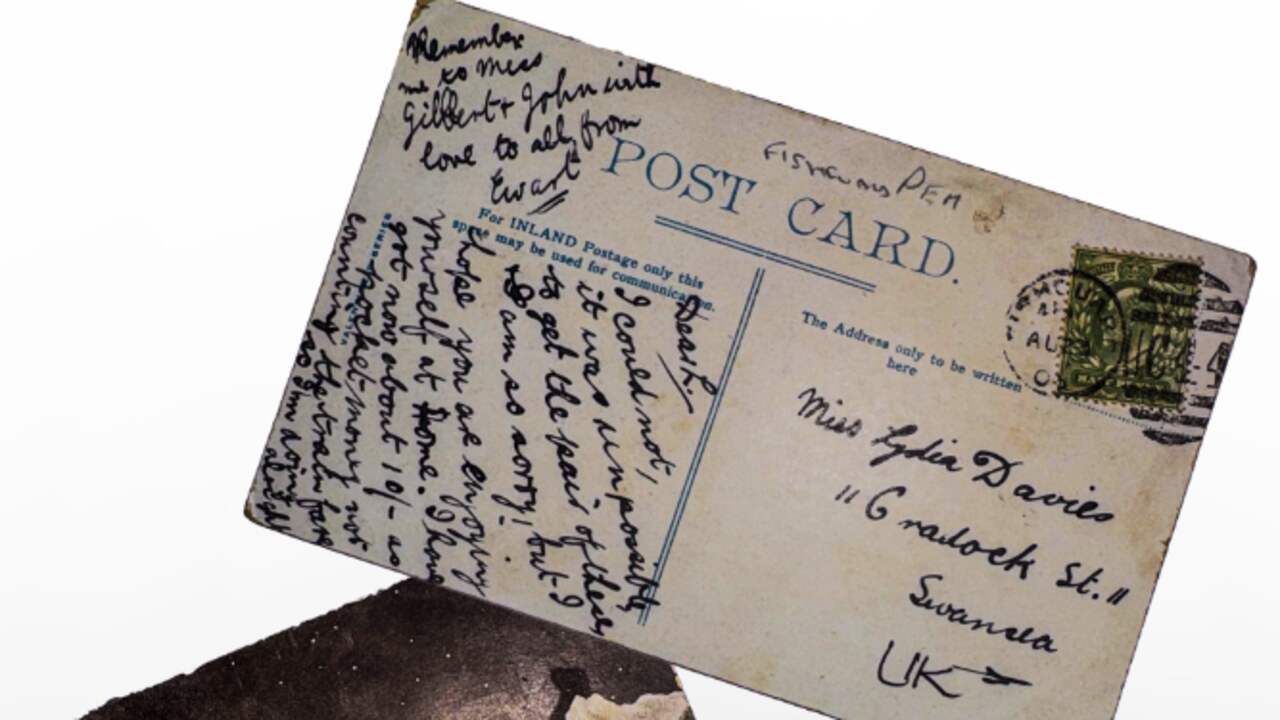 Remember
me to Miss
Gilbert + John with
love to all from
Ewart
POST CARD.
For INLAND Postage only this
space may be used for communication.
The Address only to be written
here
Dear L.
I could not,
it was impossible
to get the pair of these
I am so sorry! but I
hope you are enjoying
yourself at Home. I have
got now about 10/- as
pocket-money not
counting the train fare
so I'm doing
alright
Miss Lydia Davies
"Cradock St."
Swansea
UK